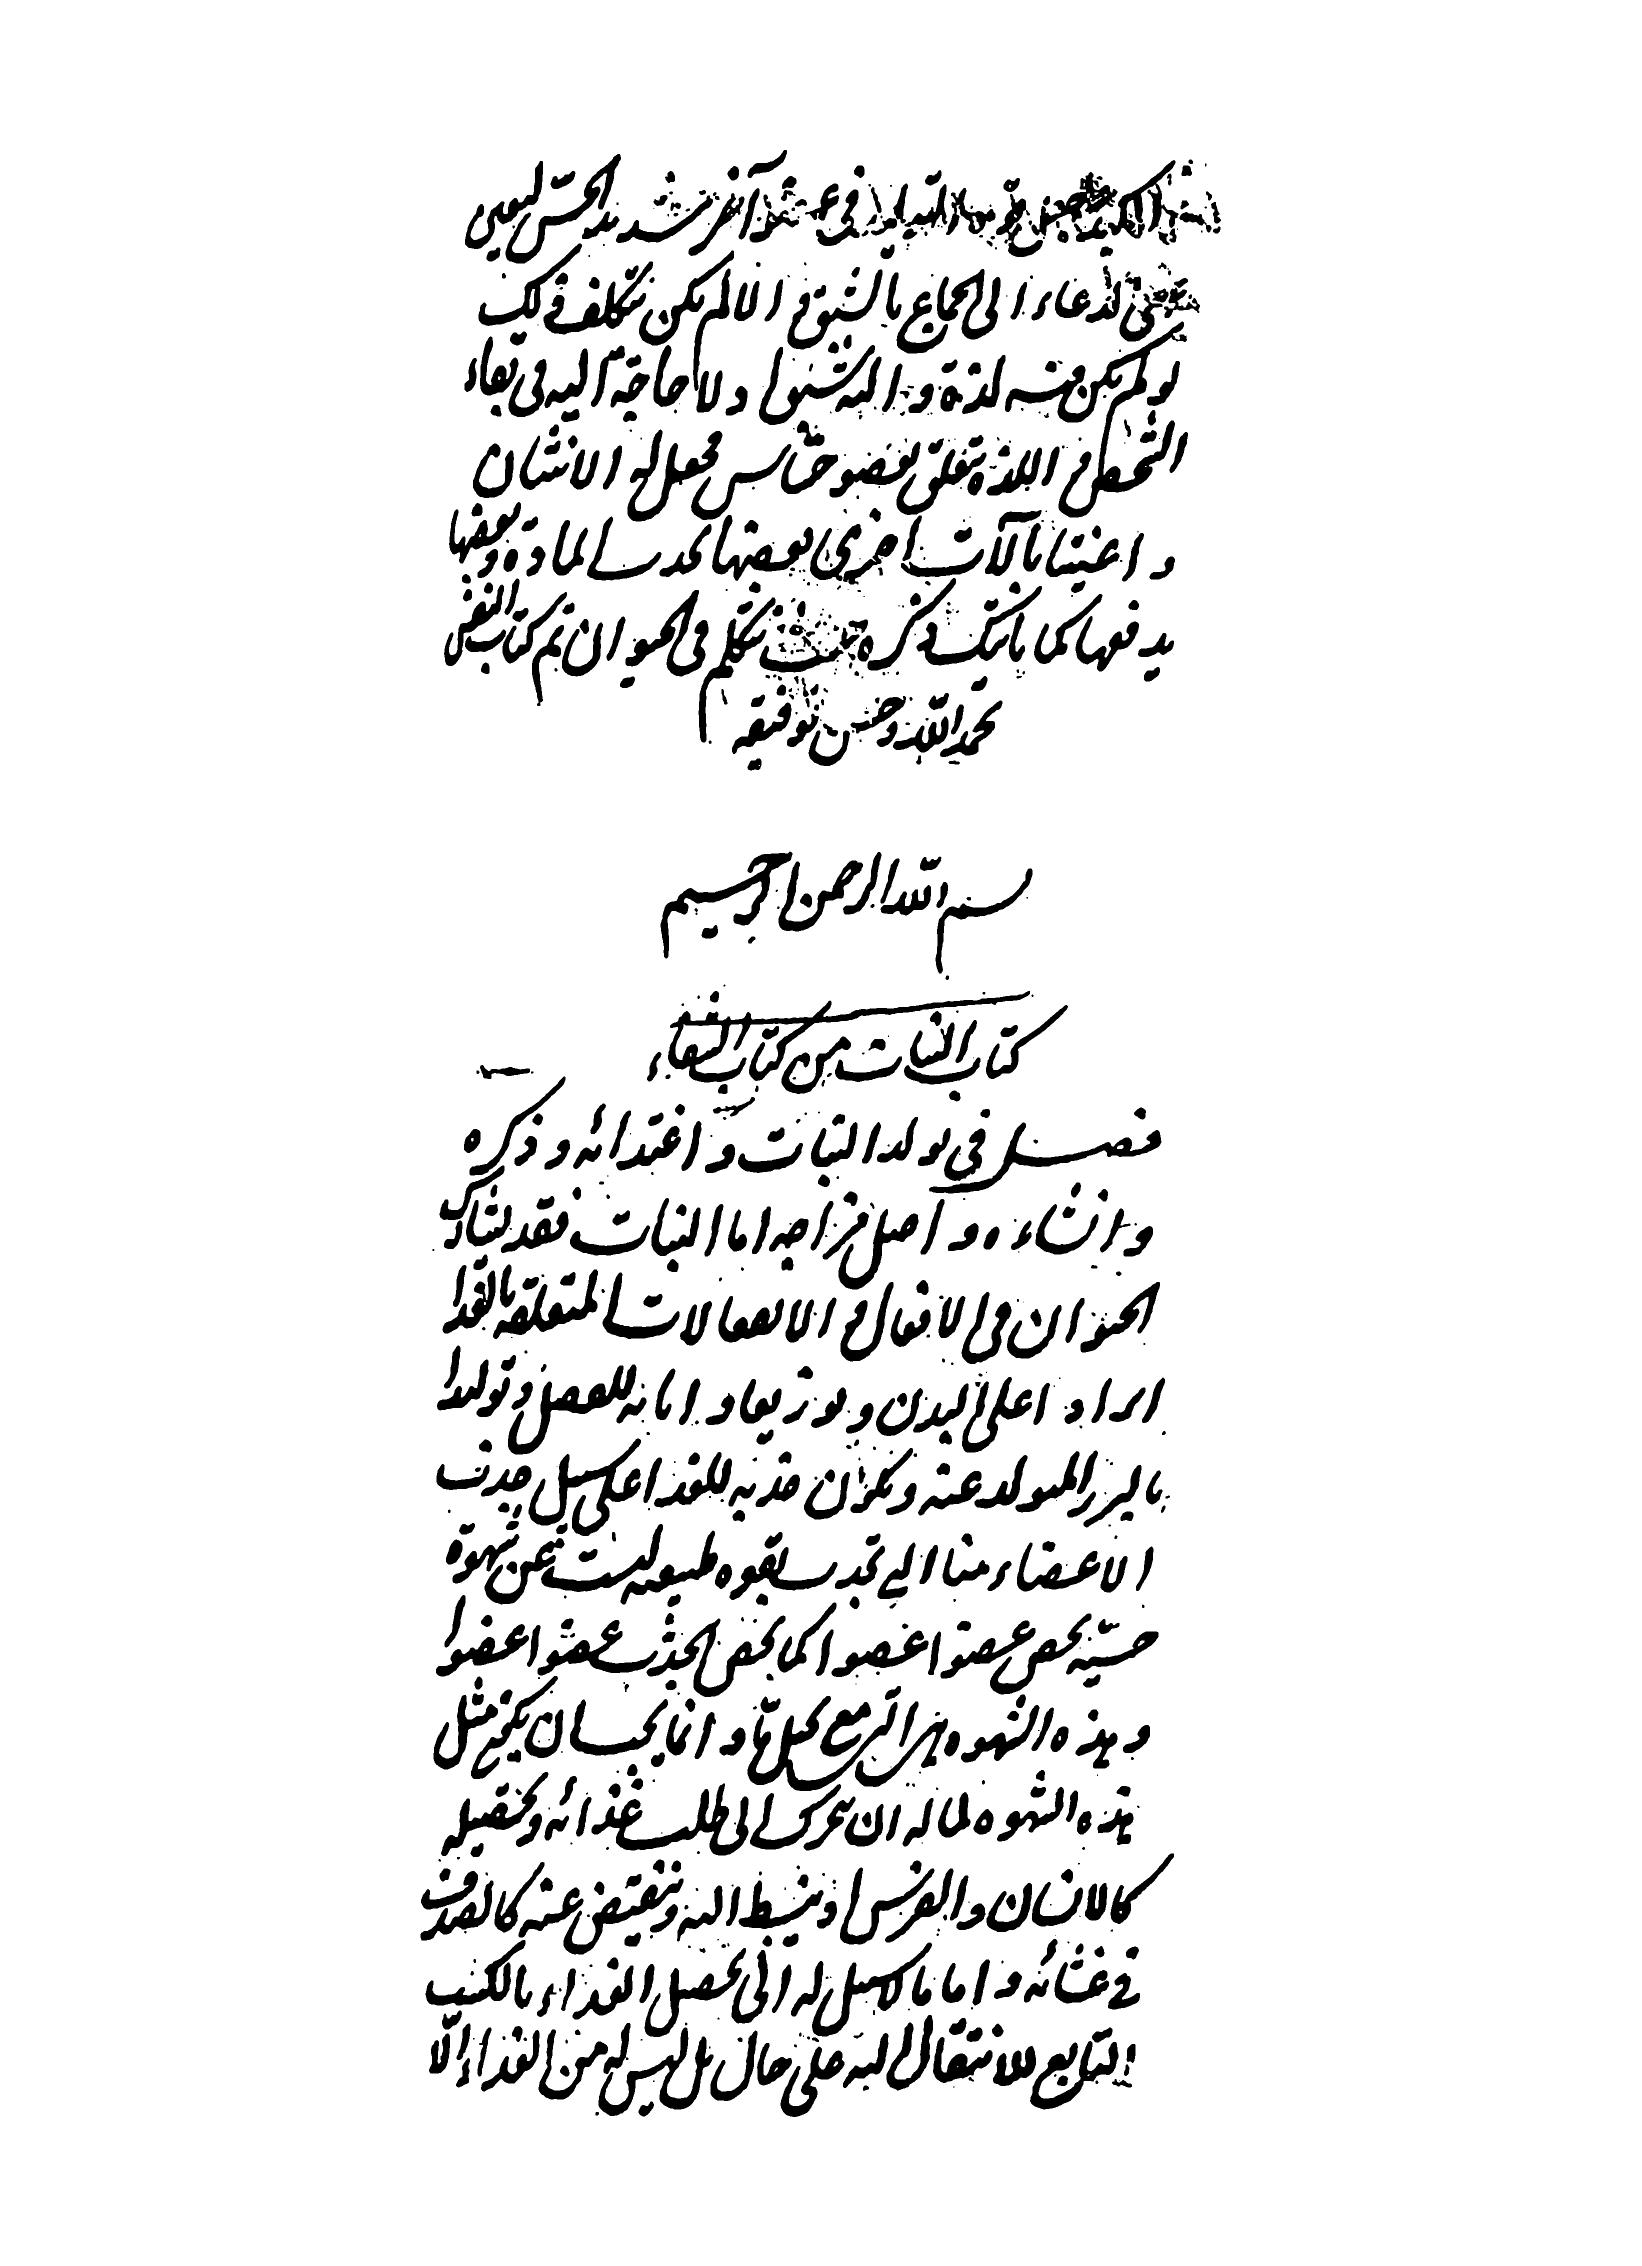 في عضو آخر شديد الحس ليعين
لدعاء الى الجماع بالشبق و الا لم يكن يتكلف ذلك
لو لم يكن فيه لذة و اليه شبق اولا و لا حاجة اليه في بقاء
الشخص و اللذة تتعلق بعضو حساس فجعل له الانثيان
و اعينتا بآلات اخرى بعضها تجذب المادة و بعضها
يدفعها كما ياتيك ذكره حيث نتكلم في الحيوان تم كتاب النفس
بحمد الله و حسن توفيقه
بسم الله الرحمن الرحيم
كتاب النبات من كتاب الشفاء
فصل في تولد النبات و اغتذائه و ذكره
و انثاه و اصل مزاجه اما النبات فقد يشارك
الحيوان في الافعال و الانفعالات المتعلقة بالغذا
ايرادا على البدن و توزيعا و ابانة للفصل و توليدا
بالبزر المتولد عنه و يكون جذبه للغذا على سبيل جذب
الاعضاء منا التي تجذب بقوه طبيعيه ليست عن شهوة
حسيه يخص عضوا عضوا كما يخص الجذب عضوا عضوا
و هذه الشهوه هي التي مع تخيل ما و انما يحسان يكون مثل
هذه الشهوه لما له ان يتحرك الى طلب غذائه و تحصيله
كالانسان و الفرس او ينبسط اليه و ينقبض عنه كالصدف
في غشائه و اما ما لا سبيل له الى تحصيل الغذاء بالكسب
التابع للانتقال اليه على حال بل ليس له من الغذاء الا